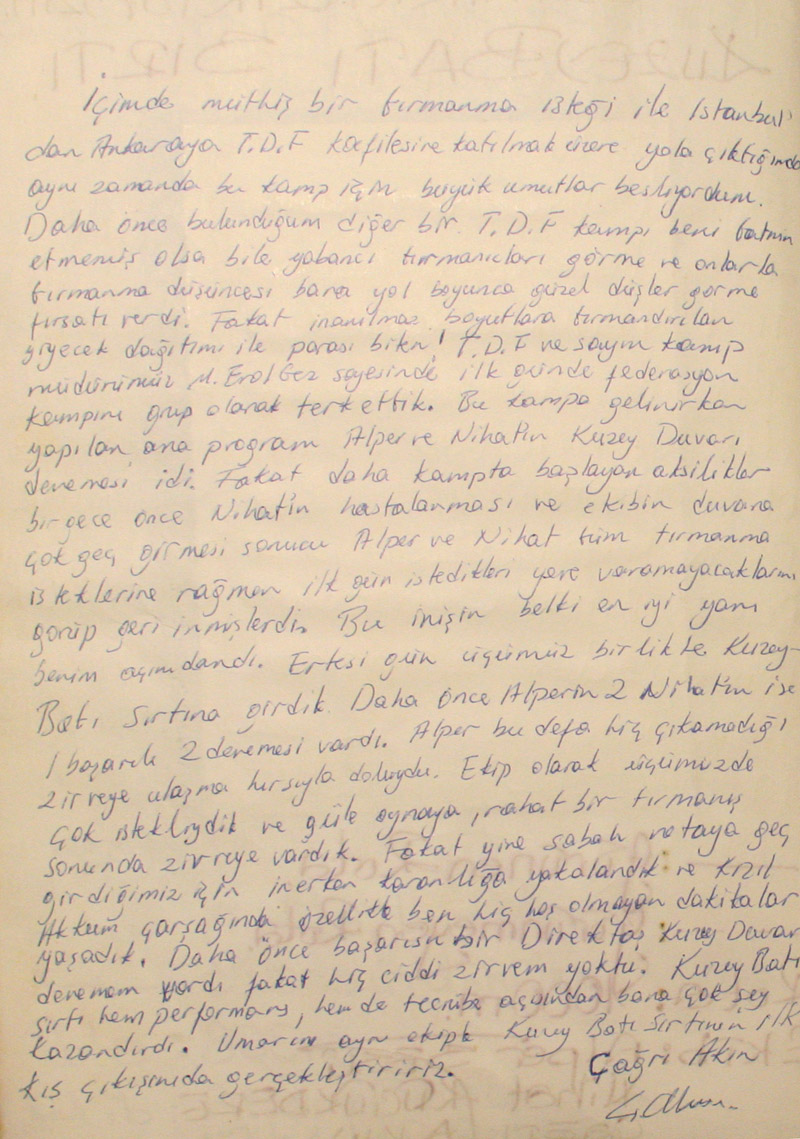 İçimde müthiş bir tırmanma isteği ile İstanbul'
dan Ankaraya T.D.F kafilesine katılmak üzere yola çıktığımda
aynı zamanda bu kamp için büyük umutlar besliyordum.
Daha önce bulunduğum diğer bir T.D.F kampı beni tatmin
etmemiş olsa bile yabancı tırmanıcıları görme ve onlarla
tırmanma düşüncesi bana yol boyunca güzel düşler görme
fırsatı verdi. Fakat inanılmaz boyutlara tırmandırılan
yiyecek dağıtımı ile parası biten! T.D.F ve sayın kamp
müdürümüz M. Erol Gez sayesinde ilk günde federasyon
kampını grup olarak terkettik. Bu kampa gelinirken
yapılan ana program Alper ve Nihat'ın Kuzey Duvarı
denemesi idi. Fakat daha kampta başlayan aksilikler
bir gece önce Nihat'ın hastalanması ve ekibin duvara
çok geç girmesi sonucu Alper ve Nihat tüm tırmanma
isteklerine rağmen ilk gün istedikleri yere varamayacaklarını
görüp geri inmişlerdi. Bu inişin belki en iyi yanı
benim açımdandı. Ertesi gün üçümüz birlikte Kuzey-
Batı Sırtına girdik. Daha önce Alperin 2 Nihat'ın ise
1 başarılı 2 denemesi vardı. Alper bu defa hiç çıkamadığı
zirveye ulaşma hırsıyla doluydu. Ekip olarak üçümüzde
çok istekliydik ve güle oynaya, rahat bir tırmanış
sonunda zirveye vardık. Fakat yine sabah rotaya geç
girdiğimiz için inerken karanlığa yakalandık ve Kızıl
Akkum çarşağında özellikle ben hiç hoş olmayan dakikalar
yaşadık. Daha önce başarısız bir Direktaş Kuzey Duvar
denemem vardı fakat hiç ciddi zirvem yoktu. Kuzey Batı
sırtı hem performans, hem de tecrübe açısından bana çok şey
kazandırdı. Umarım aynı ekiple Kuzey Batı Sırtının ilk
kış çıkışınıda gerçekleştiririz.
Çağrı Akın